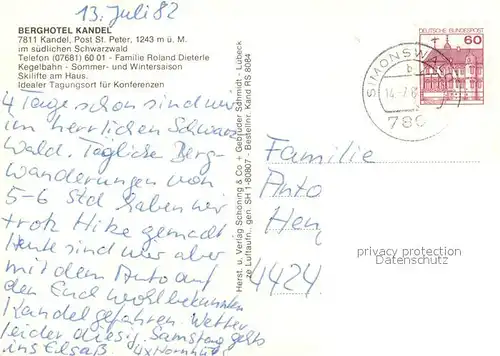 13. Juli 82
BERGHOTEL KANDEL
7811 Kandel, Post St. Peter, 1243 m ü. M.
im südlichen Schwarzwald
Telefon (07681) 60 01 - Familie Roland Dieterle
Kegelbahn - Sommer- und Wintersaison
Skilifte am Haus.
Idealer Tagungsort für Konferenzen
4 Tage schon sind wir
im herrlichen Schwarz
wald. Tägliche Berg-
wanderungen von
5-6 Std haben wir
trotz Hitze gemacht
Heute sind wir aber
mit dem Auto auf
den Euch wohlbekannten
Kandel gefahren. Wetter
leider diesig. Samstag gehts
ins Elsaß.
Herst. u. Verlag Schöning & Co + Gebrüder Schmidt, Lübeck
ze Luftaufn. gen. SH 1-80807 - Bestellnr. Kand RS 8084
DEUTSCHE BUNDESPOST
60
SIMONSWA
b
14.-7.8
780
Familie
Anto
Heng
4424
privacy protection
Datenschutz